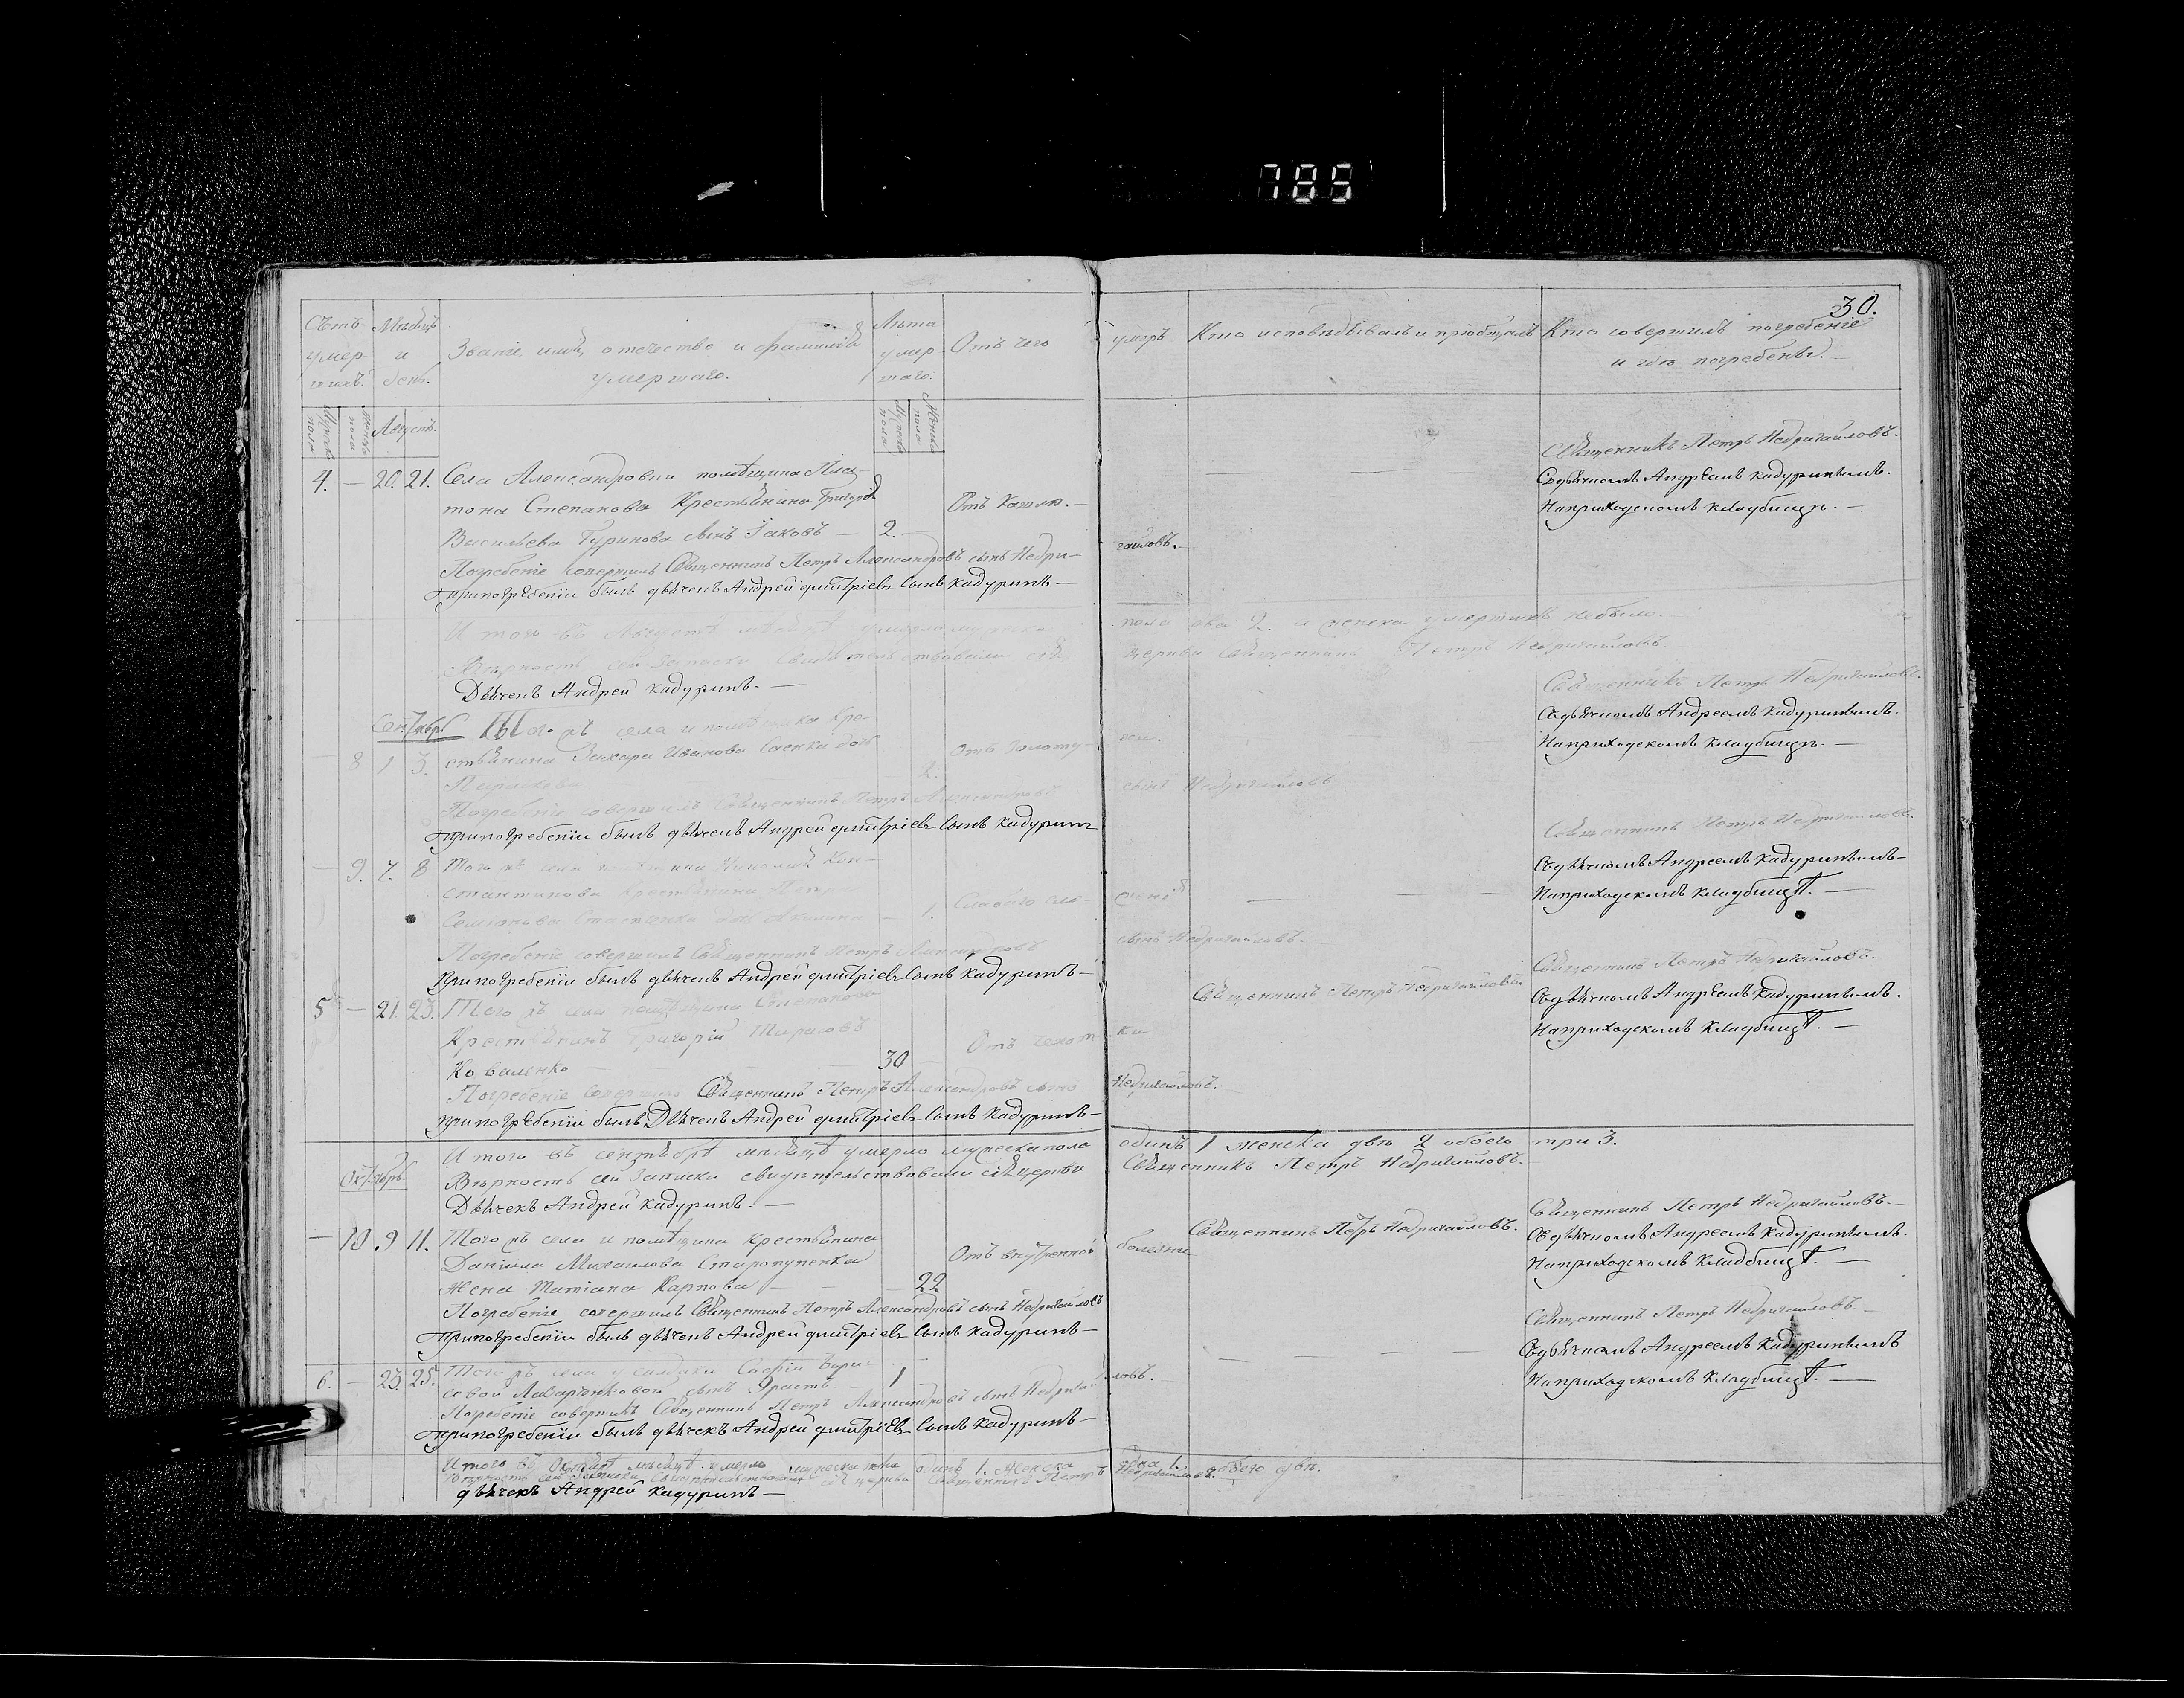 785
30.
Счетъ умер-шихъ.
Мѣсяцъ и день.
Званіе, имя, отечество и фамилія умершаго.
Лѣта умер-шаго.
Отъ чего
умеръ
Кто исповѣдывалъ и пріобщалъ
Кто совершилъ погребеніе
и гдѣ погребены.
Мужеска пола
Женска пола
Августъ.
Мужеска пола
Женска пола
4. — 20. 21. Села Александровки помѣщика Пла-
тона Степанова Крестьянина Григорія
Васильева сынъ Іаковъ — 2. Отъ Кашля. —
Погребеніе совершилъ Священникъ Петръ Александровъ сынъ Недри-
гайловъ. —
При погребеніи былъ дьячекъ Андрей Дмитріевъ сынъ Кадуринъ —
Священникъ Петръ Недригайловъ.
Съ дьячкомъ Андреемъ Кадуринымъ.
На приходскомъ кладбищѣ. —
Итого въ Августѣ мѣсяцѣ умерло мужеска
пола два 2. а женска умершихъ небыло.
Вѣрность сей записки свидѣтельствовали сея
церкви Священникъ Петръ Недригайловъ.
Дьячекъ Андрей Кадуринъ. —
Сентябрь
Того жъ села и помѣщика Кре-
— 8 1 3. стьянина Захарія Иванова дочь
2. Отъ Золоту-
хи.
Погребеніе совершилъ Священникъ Петръ Александровъ
сынъ Недригайловъ
При погребеніи былъ дьячекъ Андрей Дмитріевъ сынъ Кадуринъ
Священникъ Петръ Недригайловъ.
Съ дьячкомъ Андреемъ Кадуринымъ.
На приходскомъ кладбищѣ. —
— 9. 7. 8 Того жъ села Николая Кон-
стантинова Крестьянина Петра
Семіонова дочь — 1.
Погребеніе совершилъ Священникъ Петръ Александровъ
сынъ Недригайловъ.
При погребеніи былъ дьячекъ Андрей Дмитріевъ сынъ Кадуринъ —
Священникъ Петръ Недригайловъ.
Съ дьячкомъ Андреемъ Кадуринымъ —
На приходскомъ кладбищѣ. —
5 — 21. 23. Того жъ села помѣщика Степанова
Крестьянинъ Григорій Тарасовъ
Коваленко — 30 Отъ Чехот-
ки
Священникъ Петръ Недригайловъ.
Погребеніе совершилъ Священникъ Петръ Александровъ сынъ
Недригайловъ.
При погребеніи былъ Дьячекъ Андрей Дмитріевъ сынъ Кадуринъ —
Священникъ Петръ Недригайловъ.
Съ дьячкомъ Андреемъ Кадуринымъ.
На приходскомъ кладбищѣ. —
Итого въ сентябрѣ мѣсяцѣ умерло мужеска пола
одинъ 1 женска двѣ 2 обоего три 3.
Вѣрность сей записки свидѣтельствовали сея церкви
Священникъ Петръ Недригайловъ.
Дьячекъ Андрей Кадуринъ. —
Октябрь
— 10. 9 11. Того жъ села и помѣщика крестьянина
Даніила Михаилова
жена Татіана Карпова — 22 Отъ внутренной
болезни
Священникъ Петръ Недригайловъ.
Погребеніе совершилъ Священникъ Петръ Александровъ сынъ Недригайловъ
При погребеніи былъ дьячекъ Андрей Дмитріевъ сынъ Кадуринъ —
Священникъ Петръ Недригайловъ. —
Съ дьячкомъ Андреемъ Кадуринымъ.
На приходскомъ кладбищѣ. —
6. — 23. 25. Того жъ села Софіи Бори-
совой сынъ — 1
Погребеніе совершилъ Священникъ Петръ Александровъ сынъ Недригай-
ловъ.
При погребеніи былъ дьячекъ Андрей Дмитріевъ сынъ Кадуринъ —
Священникъ Петръ Недригайловъ —
Съ дьячкомъ Андреемъ Кадуринымъ
На приходскомъ кладбищѣ. —
Итого въ Октябрѣ мѣсяцѣ умерло мужеска пола одинъ 1. женска
одна 1. обоего двѣ.
Вѣрность сей записки свидѣтельствовали сея церкви Священникъ Петръ
Недригайловъ.
дьячекъ Андрей Кадуринъ —